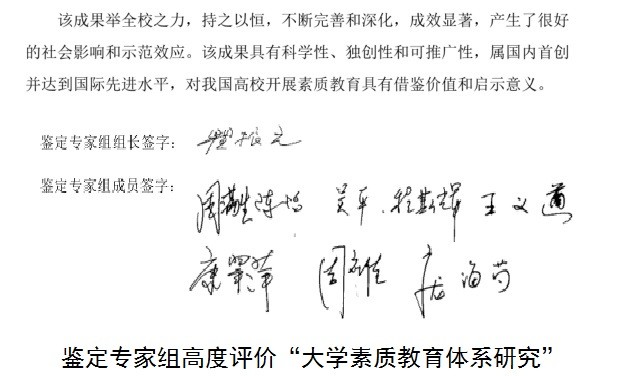 该成果举全校之力，持之以恒，不断完善和深化，成效显著，产生了很好
的社会影响和示范效应。该成果具有科学性、独创性和可推广性，属国内首创
并达到国际先进水平，对我国高校开展素质教育具有借鉴价值和启示意义。
鉴定专家组组长签字：瞿振元
鉴定专家组成员签字：
陈怡 王义遒
康翠萍 庞海芍
鉴定专家组高度评价“大学素质教育体系研究”